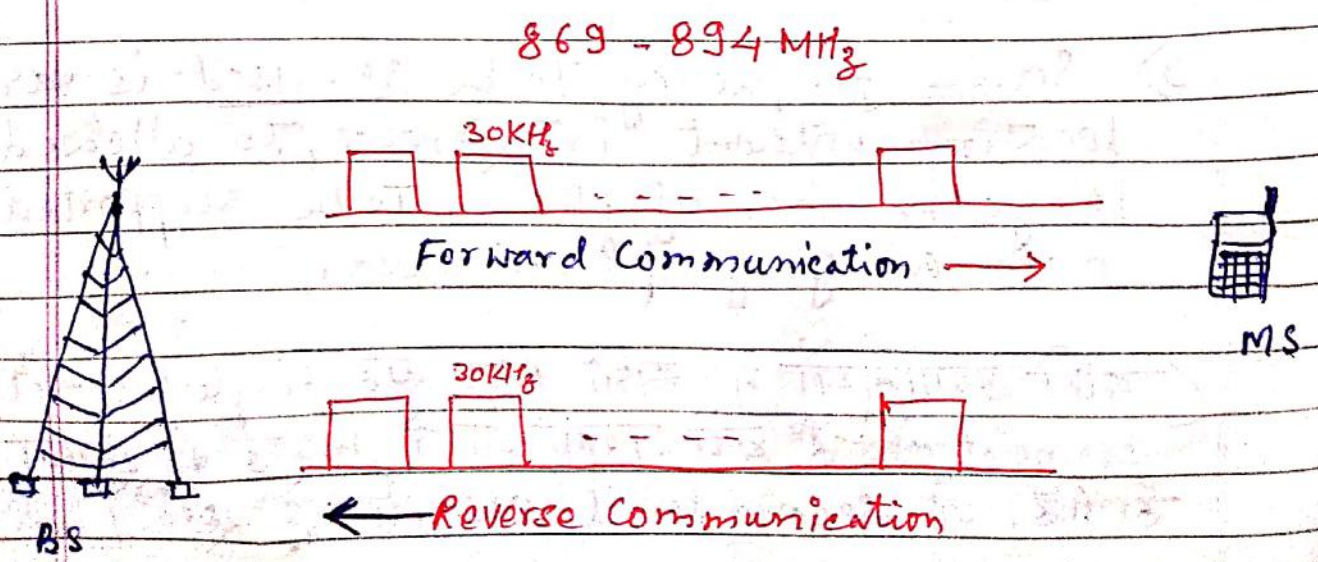 869 - 894 MHz
30KHz
Forward Communication
MS
30KHz
Reverse Communication
BS